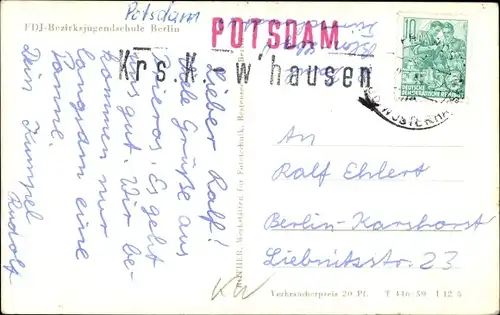 FDJ-Bezirksjugendschule Berlin
Potsdam
POTSDAM
Krs. K - w'hausen
10
DEUTSCHE
DEMOKRATISCHE REPUBLIK
Lieber Ralf!
Viele Grüße aus
Es geht
uns gut. Wir be-
kommen nur
langsam ein
Dein Kumpel
Rudolf
An
Ralf Ehlert
Berlin-Karlshorst
Liebnitzstr. 23
KW
Verbraucherpreis 20 Pf. T 446 59 I 12 6